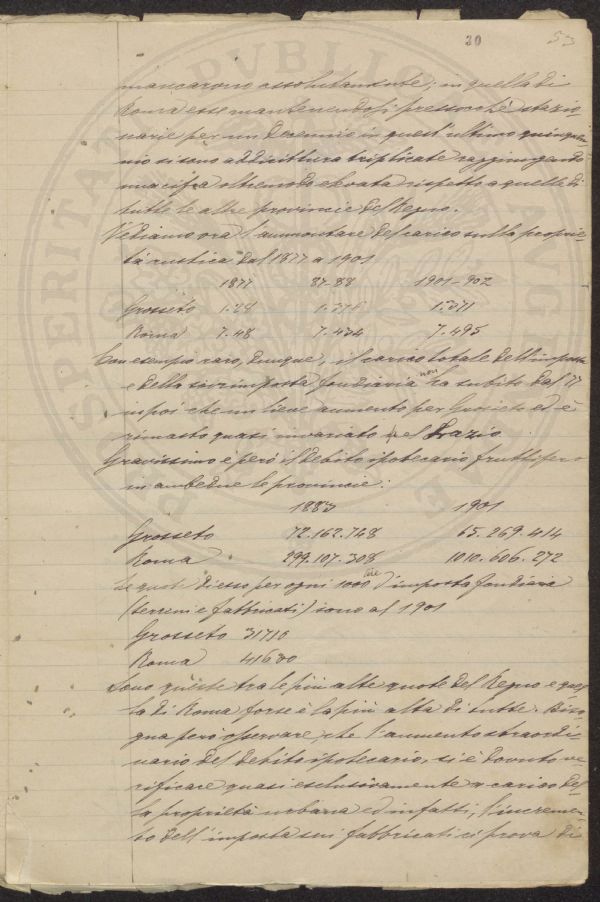 30 53
mancarono assolutamente; in quella di
Roma esse mantenendosi pressochè stazio-
narie per un decennio in quest'ultimo quinquen-
nio si sono addirittura triplicate raggiungendo
una cifra oltremodo elevata rispetto a quelle di
tutte le altre provincie del Regno.
Vediamo ora l'ammontare del carico sulla proprie-
tà rustica dal 1877 a 1901
1877 87-88 1901-902
Grosseto 1.28 1.376 1.371
Roma 7.48 7.434 7.495
Con esempio raro, dunque, il carico totale dell'imposta
e della sovrimposta fondiaria non ha subito dal 77
in poi che un lieve aumento per Grosseto ed è
rimasto quasi invariato nel Lazio.
Gravissimo è però il debito ipotecario fruttifero
in ambedue le provincie:
1883 1901
Grosseto 72.162.748 65.269.414
Roma 299.107.308 1010.606.272
Le quote di esso per ogni 1000 lire d'imposta fondiaria
(terreni e fabbricati) sono al 1901
Grosseto 31710
Roma 41680
Sono queste tra le più alte quote del Regno e quel-
la di Roma forse è la più alta di tutte. Biso-
gna però osservare, che l'aumento straordi-
nario del debito ipotecario, si è dovuto ve-
rificare quasi esclusivamente a carico del-
la proprietà urbana ed infatti, l'incremen-
to dell'imposta sui fabbricati ci prova di